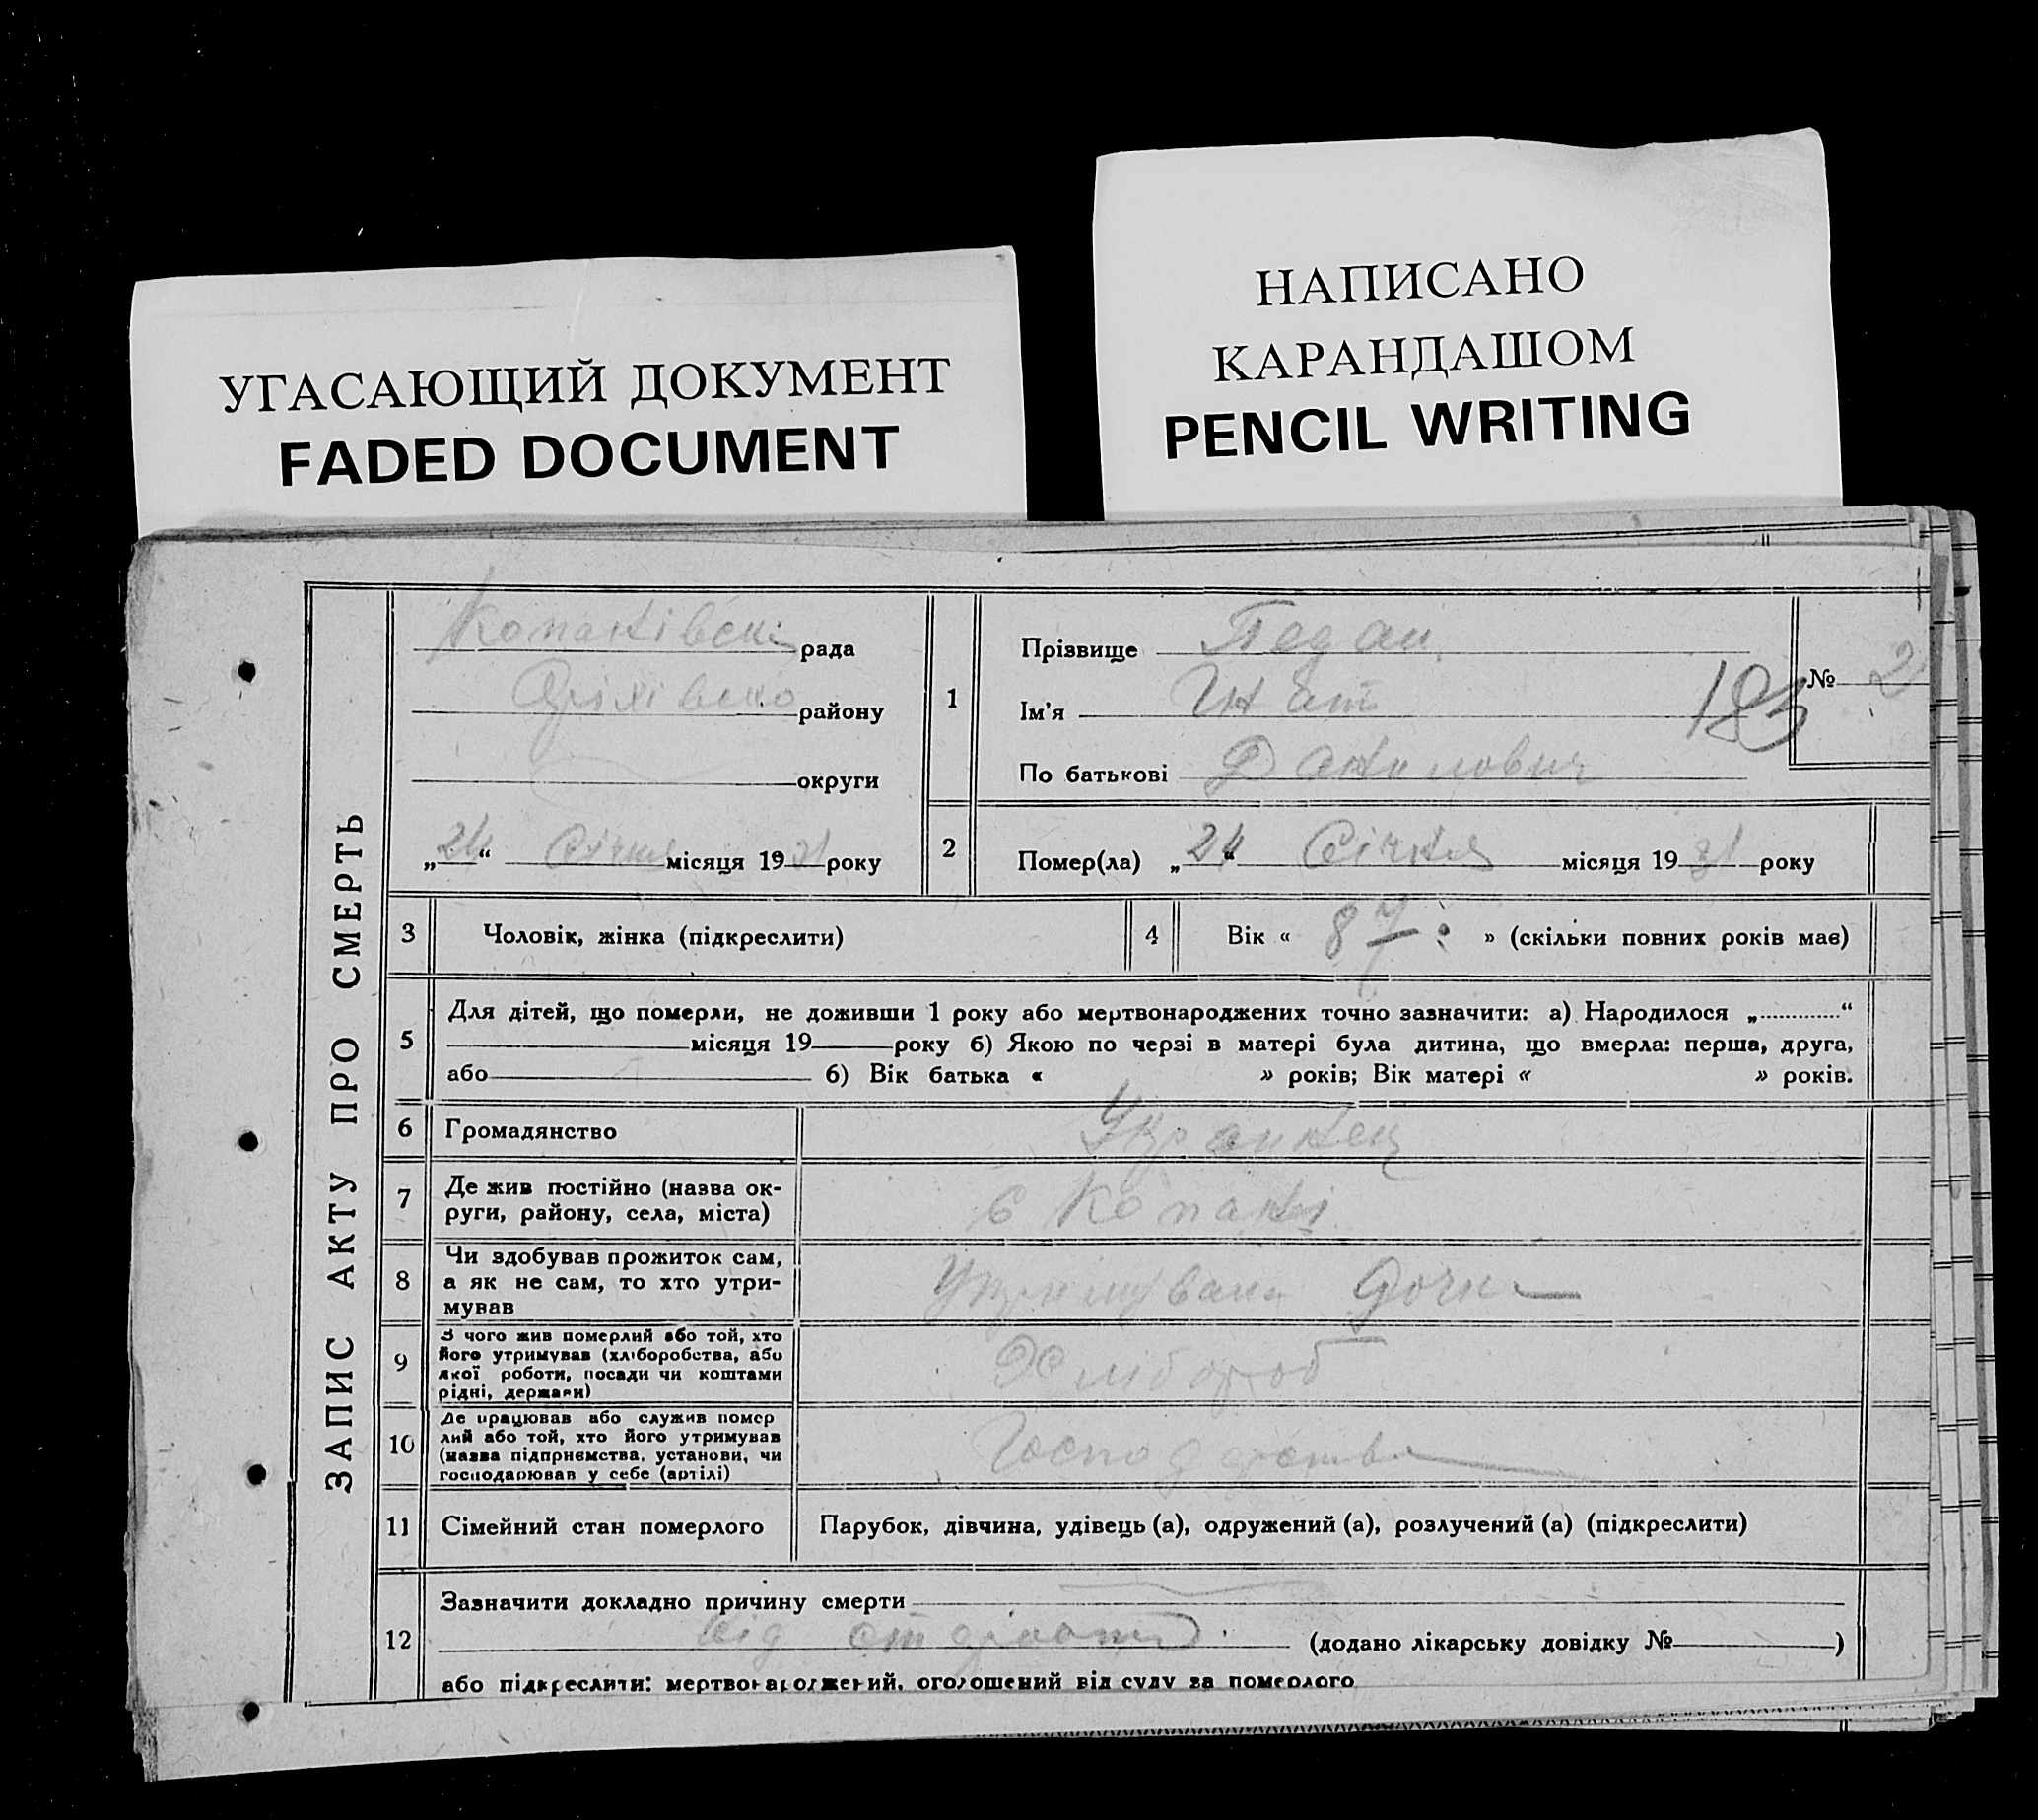 УГАСАЮЩИЙ ДОКУМЕНТ
FADED DOCUMENT
НАПИСАНО
КАРАНДАШОМ
PENCIL WRITING
ЗАПИС АКТУ ПРО СМЕРТЬ
Копанівська рада
Оріхівсько району
округи
„24“ Січня місяця 1931 року
1
Прізвище Педан
Ім'я Гнат
По батькові Данилович
№ 2
183
2
Помер(ла) „24“ Січня місяця 1931 року
3
Чоловік, жінка (підкреслити)
4
Вік « 87 » (скільки повних років має)
5
Для дітей, що померли, не доживши 1 року або мертвонароджених точно зазначити: а) Народилося „ “
місяця 19 року б) Якою по черзі в матері була дитина, що вмерла: перша, друга,
або б) Вік батька « » років; Вік матері « » років.
6
Громадянство
Українец
7
Де жив постійно (назва ок-
руги, району, села, міста)
с Копані
8
Чи здобував прожиток сам,
а як не сам, то хто утри-
мував
Утримували Дочки
9
З чого жив померлий або той, хто
його утримував (хліборобства, або
якої роботи, посади чи коштами
рідні, держави)
Хлібороб
10
Де працював або служив помер
лий або той, хто його утримував
(назва підприємства, установи, чи
господарював у себе (артілі)
Господарства
11
Сімейний стан померлого
Парубок, дівчина, удівець (а), одружений (а), розлучений (а) (підкреслити)
12
Зазначити докладно причину смерти
від старости (додано лікарську довідку № )
або підкреслити: мертвонароджений, оголошений від суду за померлого